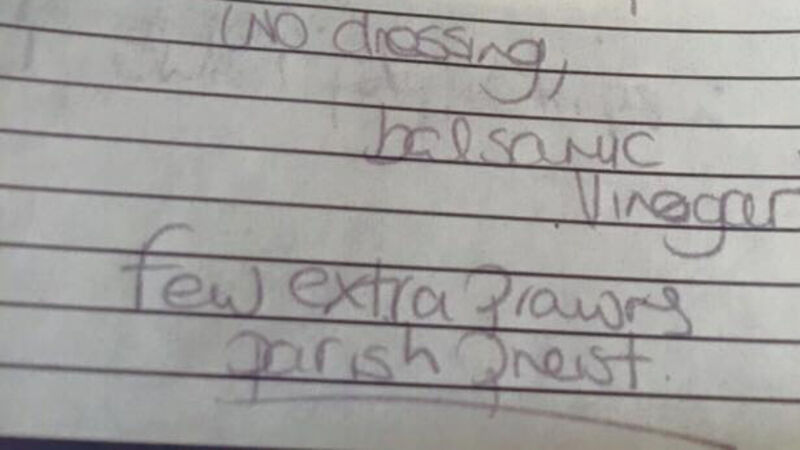 (NO dressing,
balsamic
Vinegar
few extra prawns
parish preist.